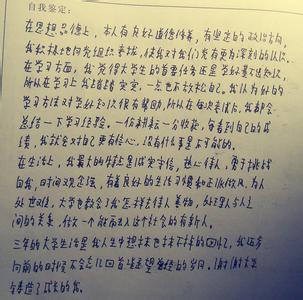 自我鉴定：
在思想品德上，本人有良好道德修养，有坚定的政治方向，
我积极地向党组织靠拢，使我对我们党有更为深刻的认识。
在学习方面，我觉得大学生的首要任务还是学好基本知识，
所以在学习上我踏踏实实，一点也不放松自己。我认为好的
学习方法对学好知识很有帮助，所以在每次考试后，我都会
总结一下学习经验。一份耕耘一分收获，每看到自己的成
绩，我就会对自己更有信心，没有什么事是不可能的。
在生活上，我最大的特点是诚实守信，热心待人，勇于挑战
自我，时间观念强，有着良好的生活习惯和正派作风。为人
外世，大学也教会了我怎样去待人善物，处理人与人之
间的关系，做一个能融入这个社会的有新人。
三年的大学生活是我人生中想抹也抹不掉的回忆，我迈步
向前的时候不会忘记回首凝望曾经的岁月。谢谢大学
生铸造了成长的我。